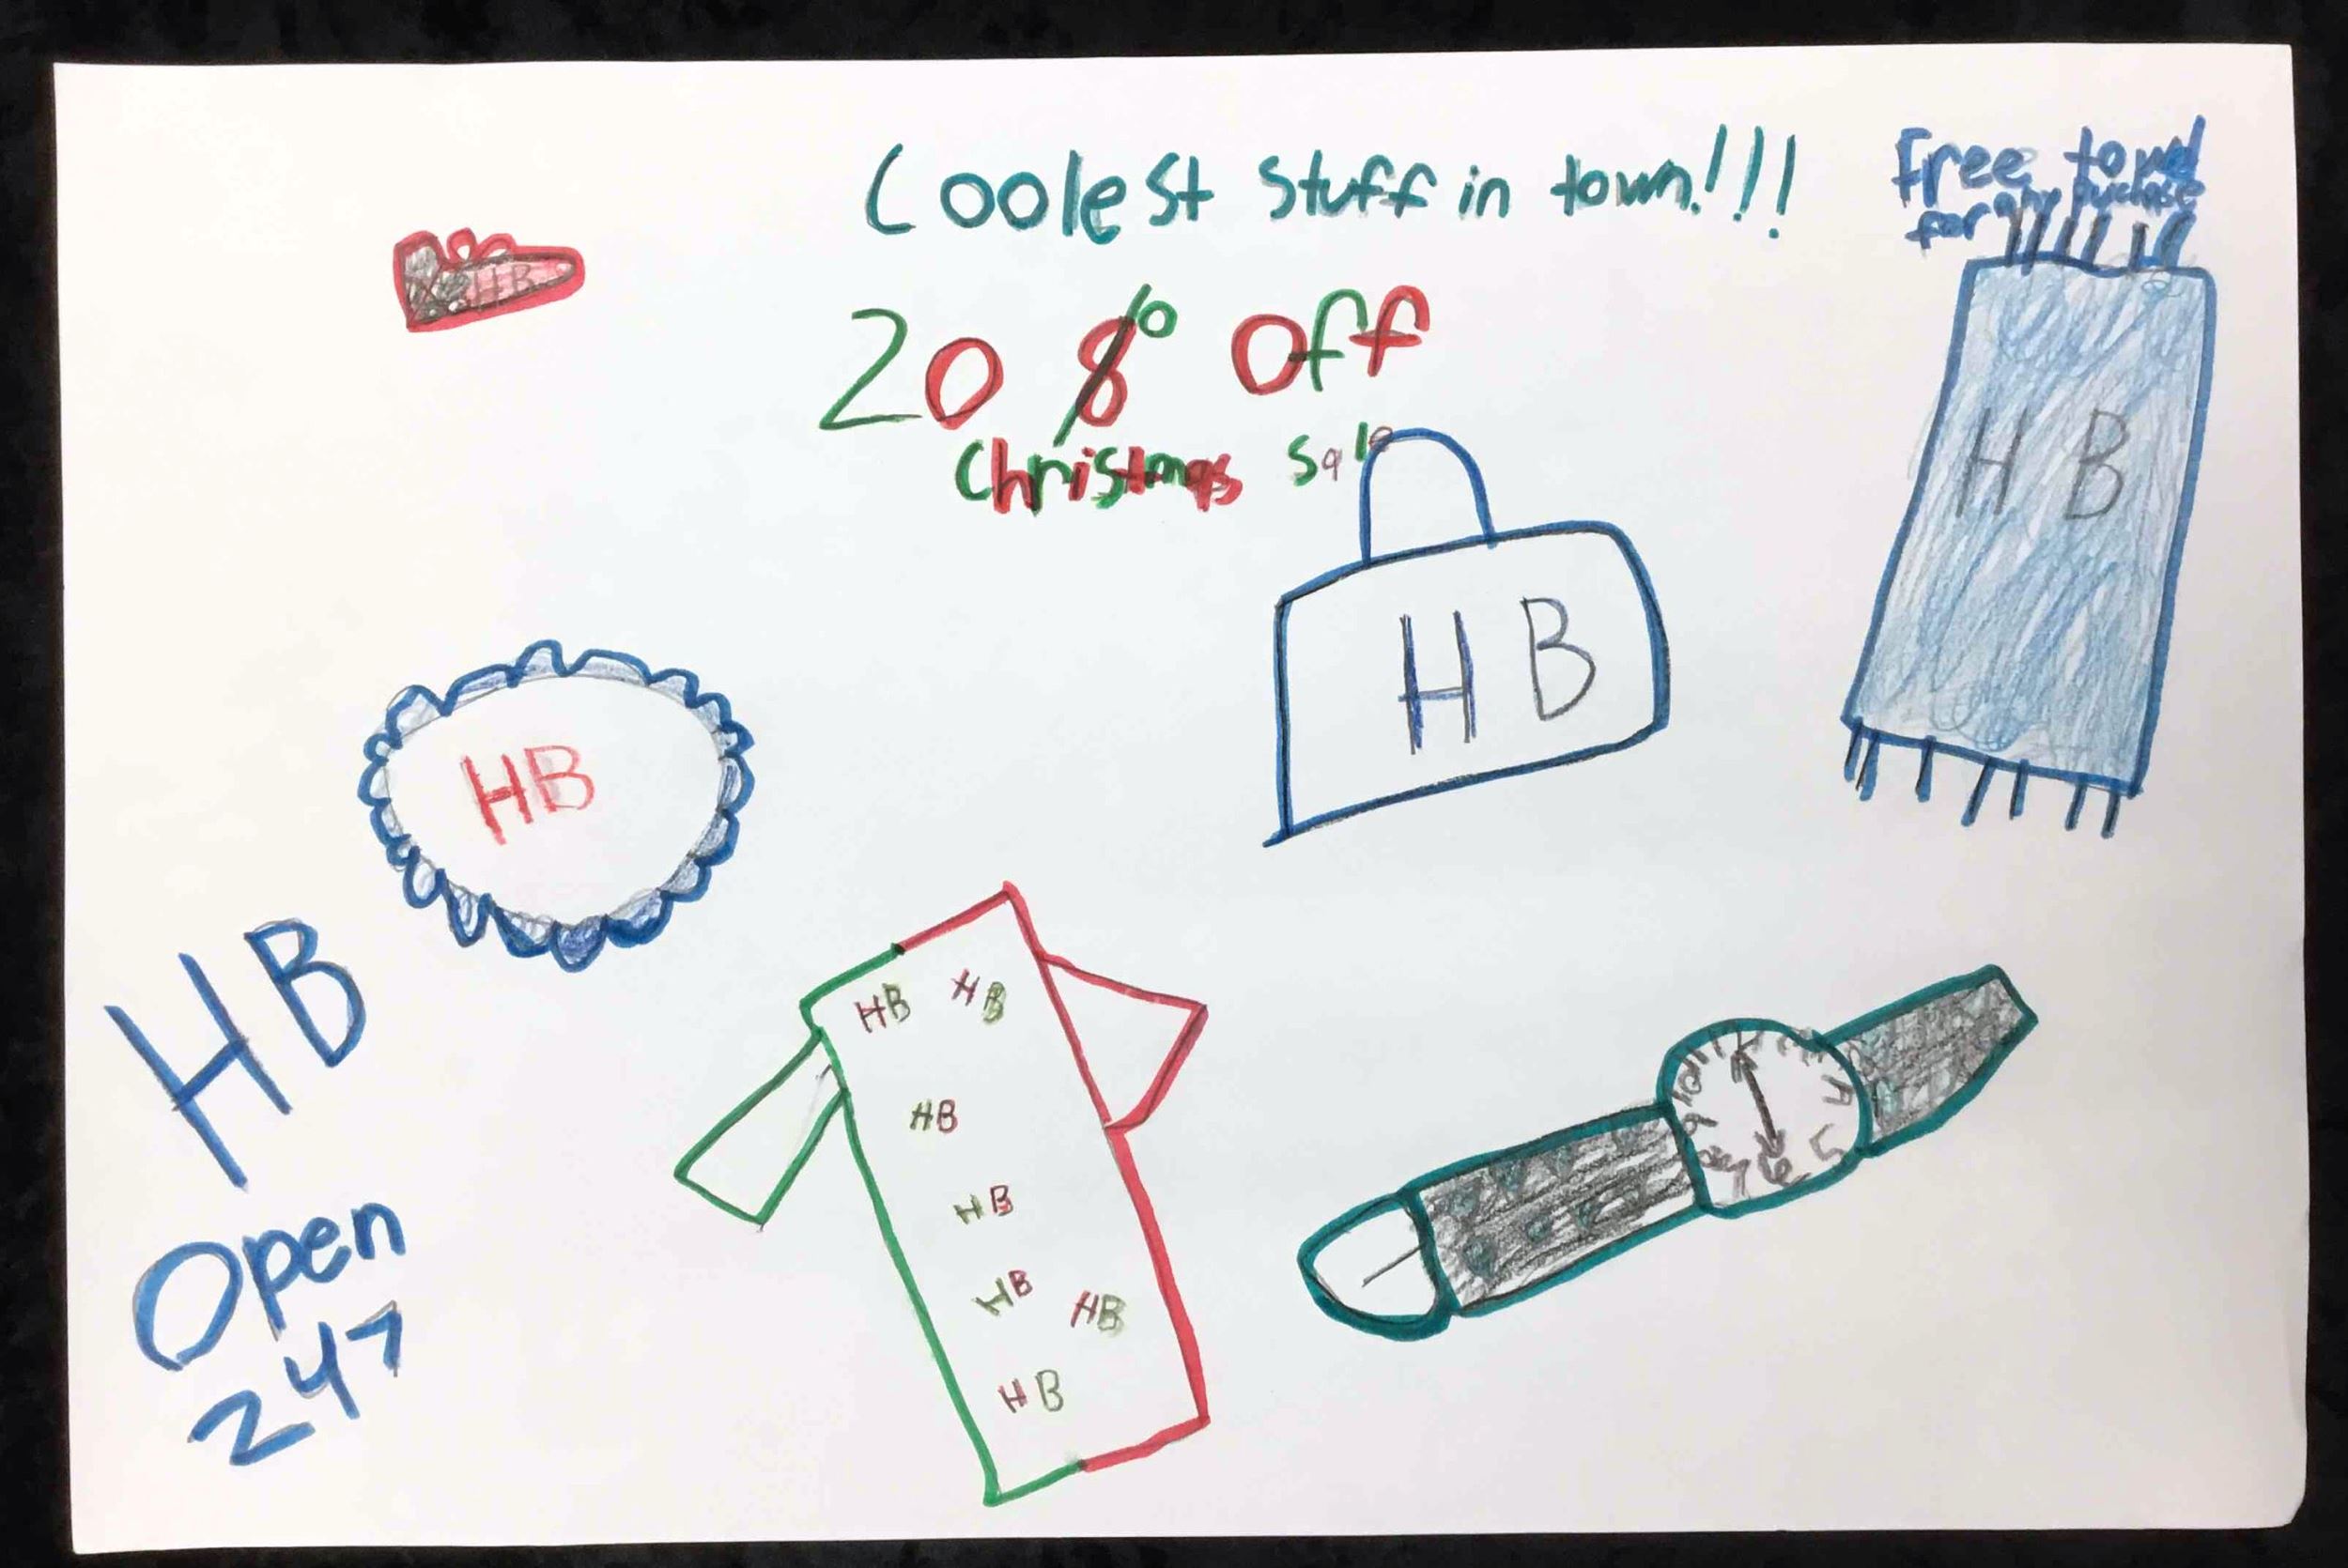 Coolest Stuff in town!!!
Free towel
for any
20 % off
Christmas sale
HB
H B
H B
HB
HB
Open
247
HB HB
HB
HB
HB HB
HB